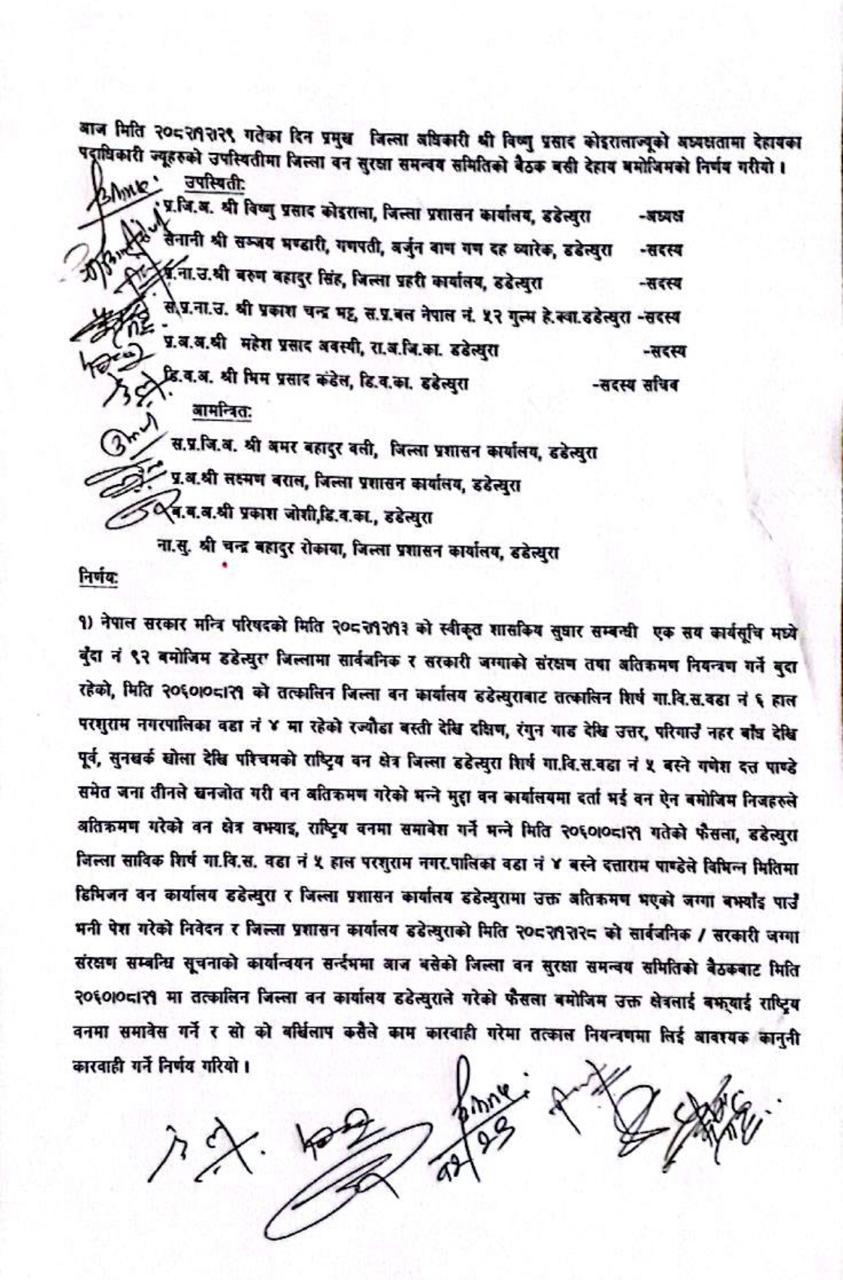 आज मिति २०८२।१२।२९ गतेका दिन प्रमुख जिल्ला अधिकारी श्री विष्णु प्रसाद कोइरालाज्यूको अध्यक्षतामा देहायका
पदाधिकारी ज्यूहरुको उपस्थितीमा जिल्ला वन सुरक्षा समन्वय समितिको बैठक बसी देहाय बमोजिमको निर्णय गरीयो ।
उपस्थिती:
प्र.जि.अ. श्री विष्णु प्रसाद कोइराला, जिल्ला प्रशासन कार्यालय, डडेल्धुरा -अध्यक्ष
सेनानी श्री सञ्जय भण्डारी, गणपती, अर्जुन वाण गण दह ब्यारेक, डडेल्धुरा -सदस्य
प्र.ना.उ.श्री बरुण बहादुर सिंह, जिल्ला प्रहरी कार्यालय, डडेल्धुरा -सदस्य
स.प्र.ना.उ. श्री प्रकाश चन्द्र भट्ट, स.प्र.बल नेपाल नं. ५२ गुल्म हे.क्वा.डडेल्धुरा -सदस्य
प्र.अ.अ.श्री महेश प्रसाद अवस्थी, रा.अ.जि.का. डडेल्धुरा -सदस्य
डि.व.अ. श्री भिम प्रसाद कंडेल, डि.व.का. डडेल्धुरा -सदस्य सचिव
आमन्त्रित:
स.प्र.जि.अ. श्री अमर बहादुर वली, जिल्ला प्रशासन कार्यालय, डडेल्धुरा
प्र.अ.श्री लक्ष्मण बराल, जिल्ला प्रशासन कार्यालय, डडेल्धुरा
ब.ब.अ.श्री प्रकाश जोशी,डि.व.का., डडेल्धुरा
ना.सु. श्री चन्द्र बहादुर रोकाया, जिल्ला प्रशासन कार्यालय, डडेल्धुरा
निर्णय:
१) नेपाल सरकार मन्त्रि परिषदको मिति २०८२।१२।१३ को स्वीकृत शासकिय सुधार सम्बन्धी एक सय कार्यसूचि मध्ये
बुँदा नं ९२ बमोजिम डडेल्धुरा जिल्लामा सार्वजनिक र सरकारी जग्गाको संरक्षण तथा अतिक्रमण नियन्त्रण गर्ने बुदा
रहेको, मिति २०६०।०८।२१ को तत्कालिन जिल्ला वन कार्यालय डडेल्धुराबाट तत्कालिन शिर्ष गा.वि.स.वडा नं ६ हाल
परशुराम नगरपालिका वडा नं ४ मा रहेको रज्यौडा बस्ती देखि दक्षिण, रंगुन गाड देखि उत्तर, परिगाउँ नहर बाँध देखि
पूर्व, सुनखर्क खोला देखि पश्चिमको राष्ट्रिय वन क्षेत्र जिल्ला डडेल्धुरा शिर्ष गा.वि.स.वडा नं ५ बस्ने गणेश दत्त पाण्डे
समेत जना तीनले खनजोत गरी वन अतिक्रमण गरेको भन्ने मुद्दा वन कार्यालयमा दर्ता भई वन ऐन बमोजिम निजहरुले
अतिक्रमण गरेको वन क्षेत्र वभ्याइ, राष्ट्रिय वनमा समाबेश गर्ने भन्ने मिति २०६०।०८।२१ गतेको फैसला, डडेल्धुरा
जिल्ला साविक शिर्ष गा.वि.स. वडा नं ५ हाल परशुराम नगर.पालिका वडा नं ४ बस्ने दत्ताराम पाण्डेले विभिन्न मितिमा
डिभिजन वन कार्यालय डडेल्धुरा र जिल्ला प्रशासन कार्यालय डडेल्धुरामा उक्त अतिक्रमण भएको जग्गा बर्भ्याइ पाउँ
भनी पेश गरेको निवेदन र जिल्ला प्रशासन कार्यालय डडेल्धुराको मिति २०८२।१२।२८ को सार्वजनिक / सरकारी जग्गा
संरक्षण सम्बन्धि सूचनाको कार्यान्वयन सर्न्दभमा आज बसेको जिल्ला वन सुरक्षा समन्वय समितिको बैठकबाट मिति
२०६०।०८।२१ मा तत्कालिन जिल्ला वन कार्यालय डडेल्धुराले गरेको फैसला बमोजिम उक्त क्षेत्रलाई बझ्याई राष्ट्रिय
वनमा समावेस गर्ने र सो को बर्खिलाप कसैले काम कारवाही गरेमा तत्काल नियन्त्रणमा लिई आवश्यक कानुनी
कारवाही गर्ने निर्णय गरियो ।
१२/२९